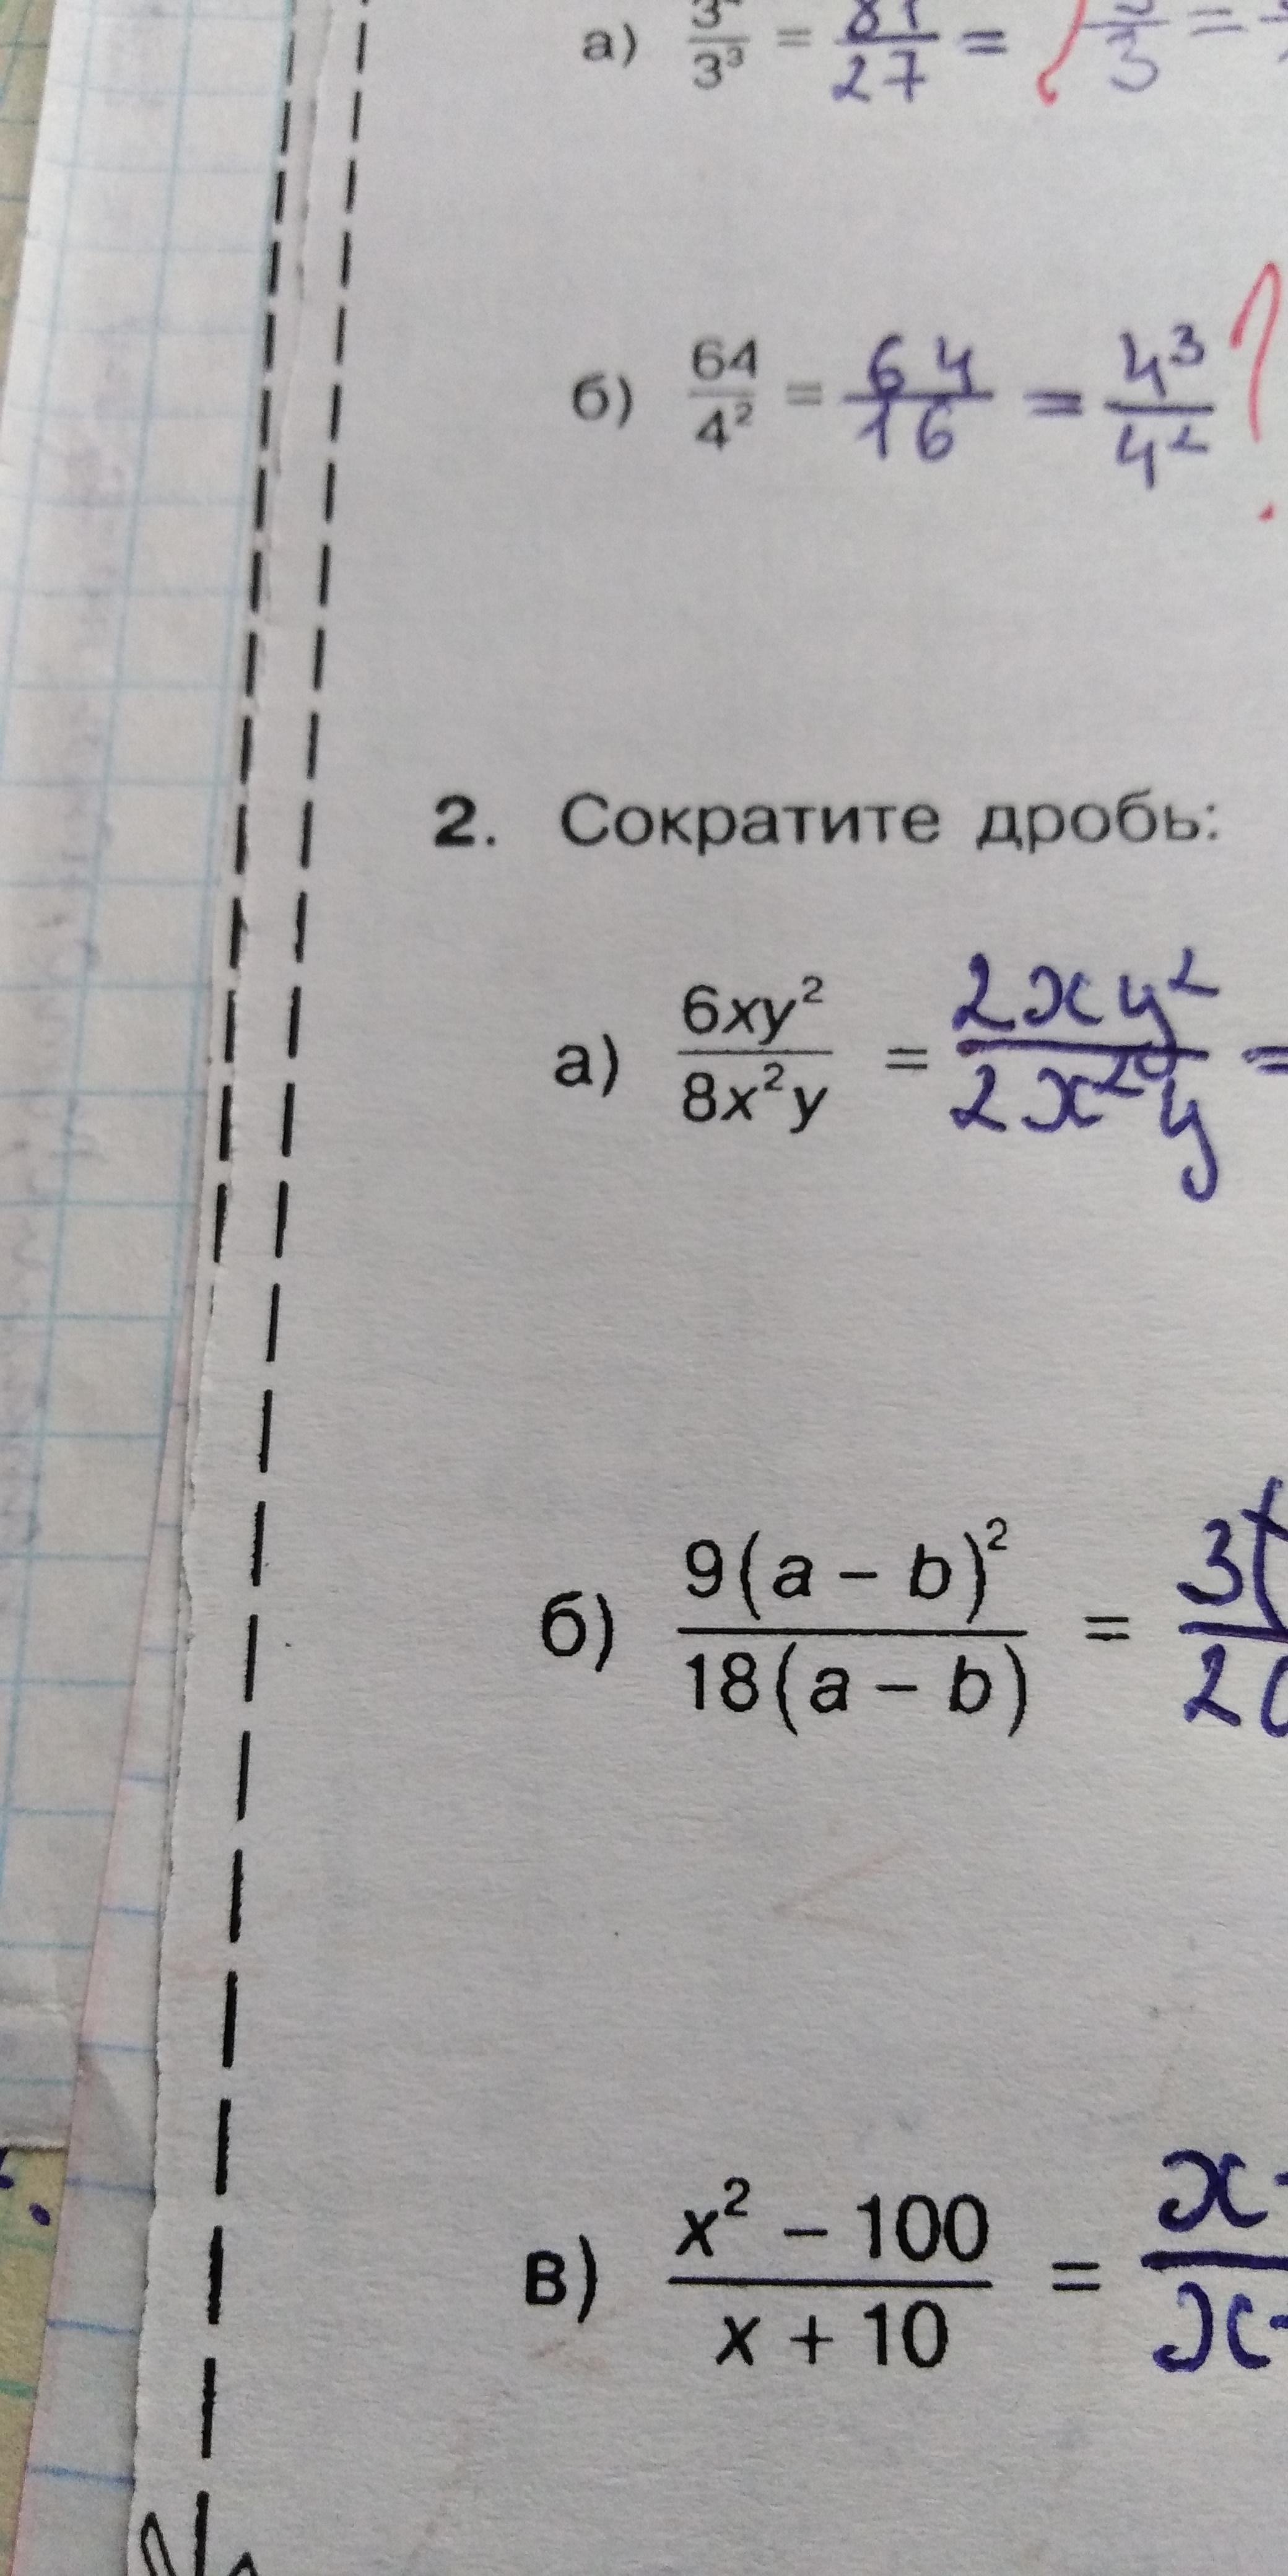 а) 3⁴/3³ = 81/27 = 3 =
б) 64/4² = 64/16 = 4³/4² ?
2. Сократите дробь:
а) 6xy²/8x²y = 2xy²/2x²y =
б) 9(a – b)²/18(a – b) = 3(/2(
в) x² – 100/x + 10 = x/x